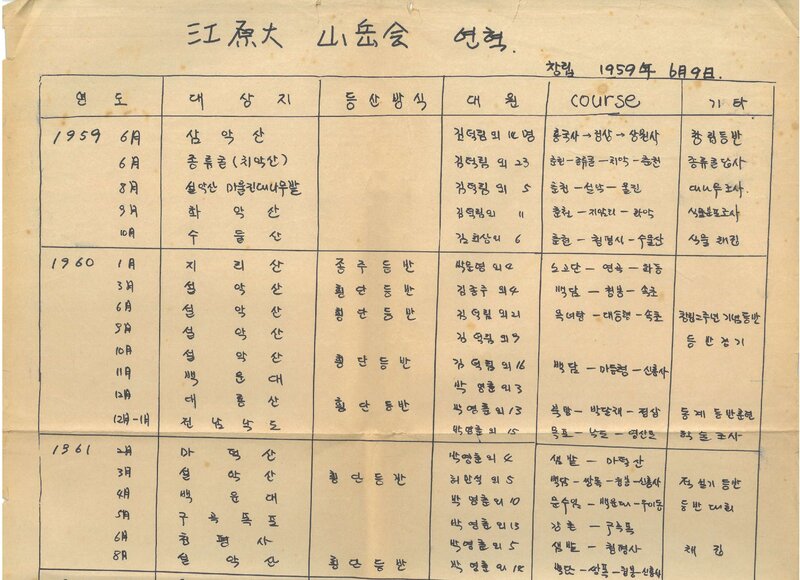 江原大 山岳会 연혁.
창립 1959年 6月9日.
연 도 대 상 지 등 산 방 식 대 원 course 기 타
1959 6月 삼 악 산 김덕림 외 12명 흥국사→정상→상원사 창립등반
6月 종류굴(치악산) 김덕림 외 23 춘천-종유굴-치악-춘천 종류굴답사
8月 설악산 마을진대나무밭 김덕림 외 5 춘천-설악-울진 대나무조사
9月 화 악 산 김덕림외 11 춘천-지암리-화악 식물분포조사
10月 수 둘 산 김희상의 6 춘천-청평사-수둘산 식물채집
1960 1月 지 리 산 종 주 등 반 박문영 외4 노고단-연곡-화동
3月 설 악 산 횡 단 등 반 김종주 외4 백담-청봉-속초
6月 설 악 산 횡 단 등 반 김덕림외21 옥녀탕-대승령-속초 창립2주년기념등반
9月 설 악 산 김덕림외9 등반경기
10月 설 악 산 횡 단 등 반 김덕림외16 백담-마등령-신흥사
11月 백 운 대 박영훈외3
12月 대 룡 산 횡 단 등 반 박영훈외13 동계등반훈련
12月-1月 전 남 낙 도 박영훈외 15 목포-낙도-영산포 학술조사
1961 2月 마 적 산 박영훈외 4 샘밭-마적산
3月 설 악 산 횡 단 등 반 외 5 백담-쌍폭-청봉-신흥사 적설기등반
4月 백 운 대 박영훈 외 10 문수암-백운대-우이동 등반대회
5月 구 곡 폭 포 박영훈 외 13 강촌-구곡폭
6月 청 평 사 박영훈외 5 샘밭-청평사 채집
8月 설 악 산 횡 단 등 반 박영훈 외 12 백단-쌍폭-청봉-신흥사